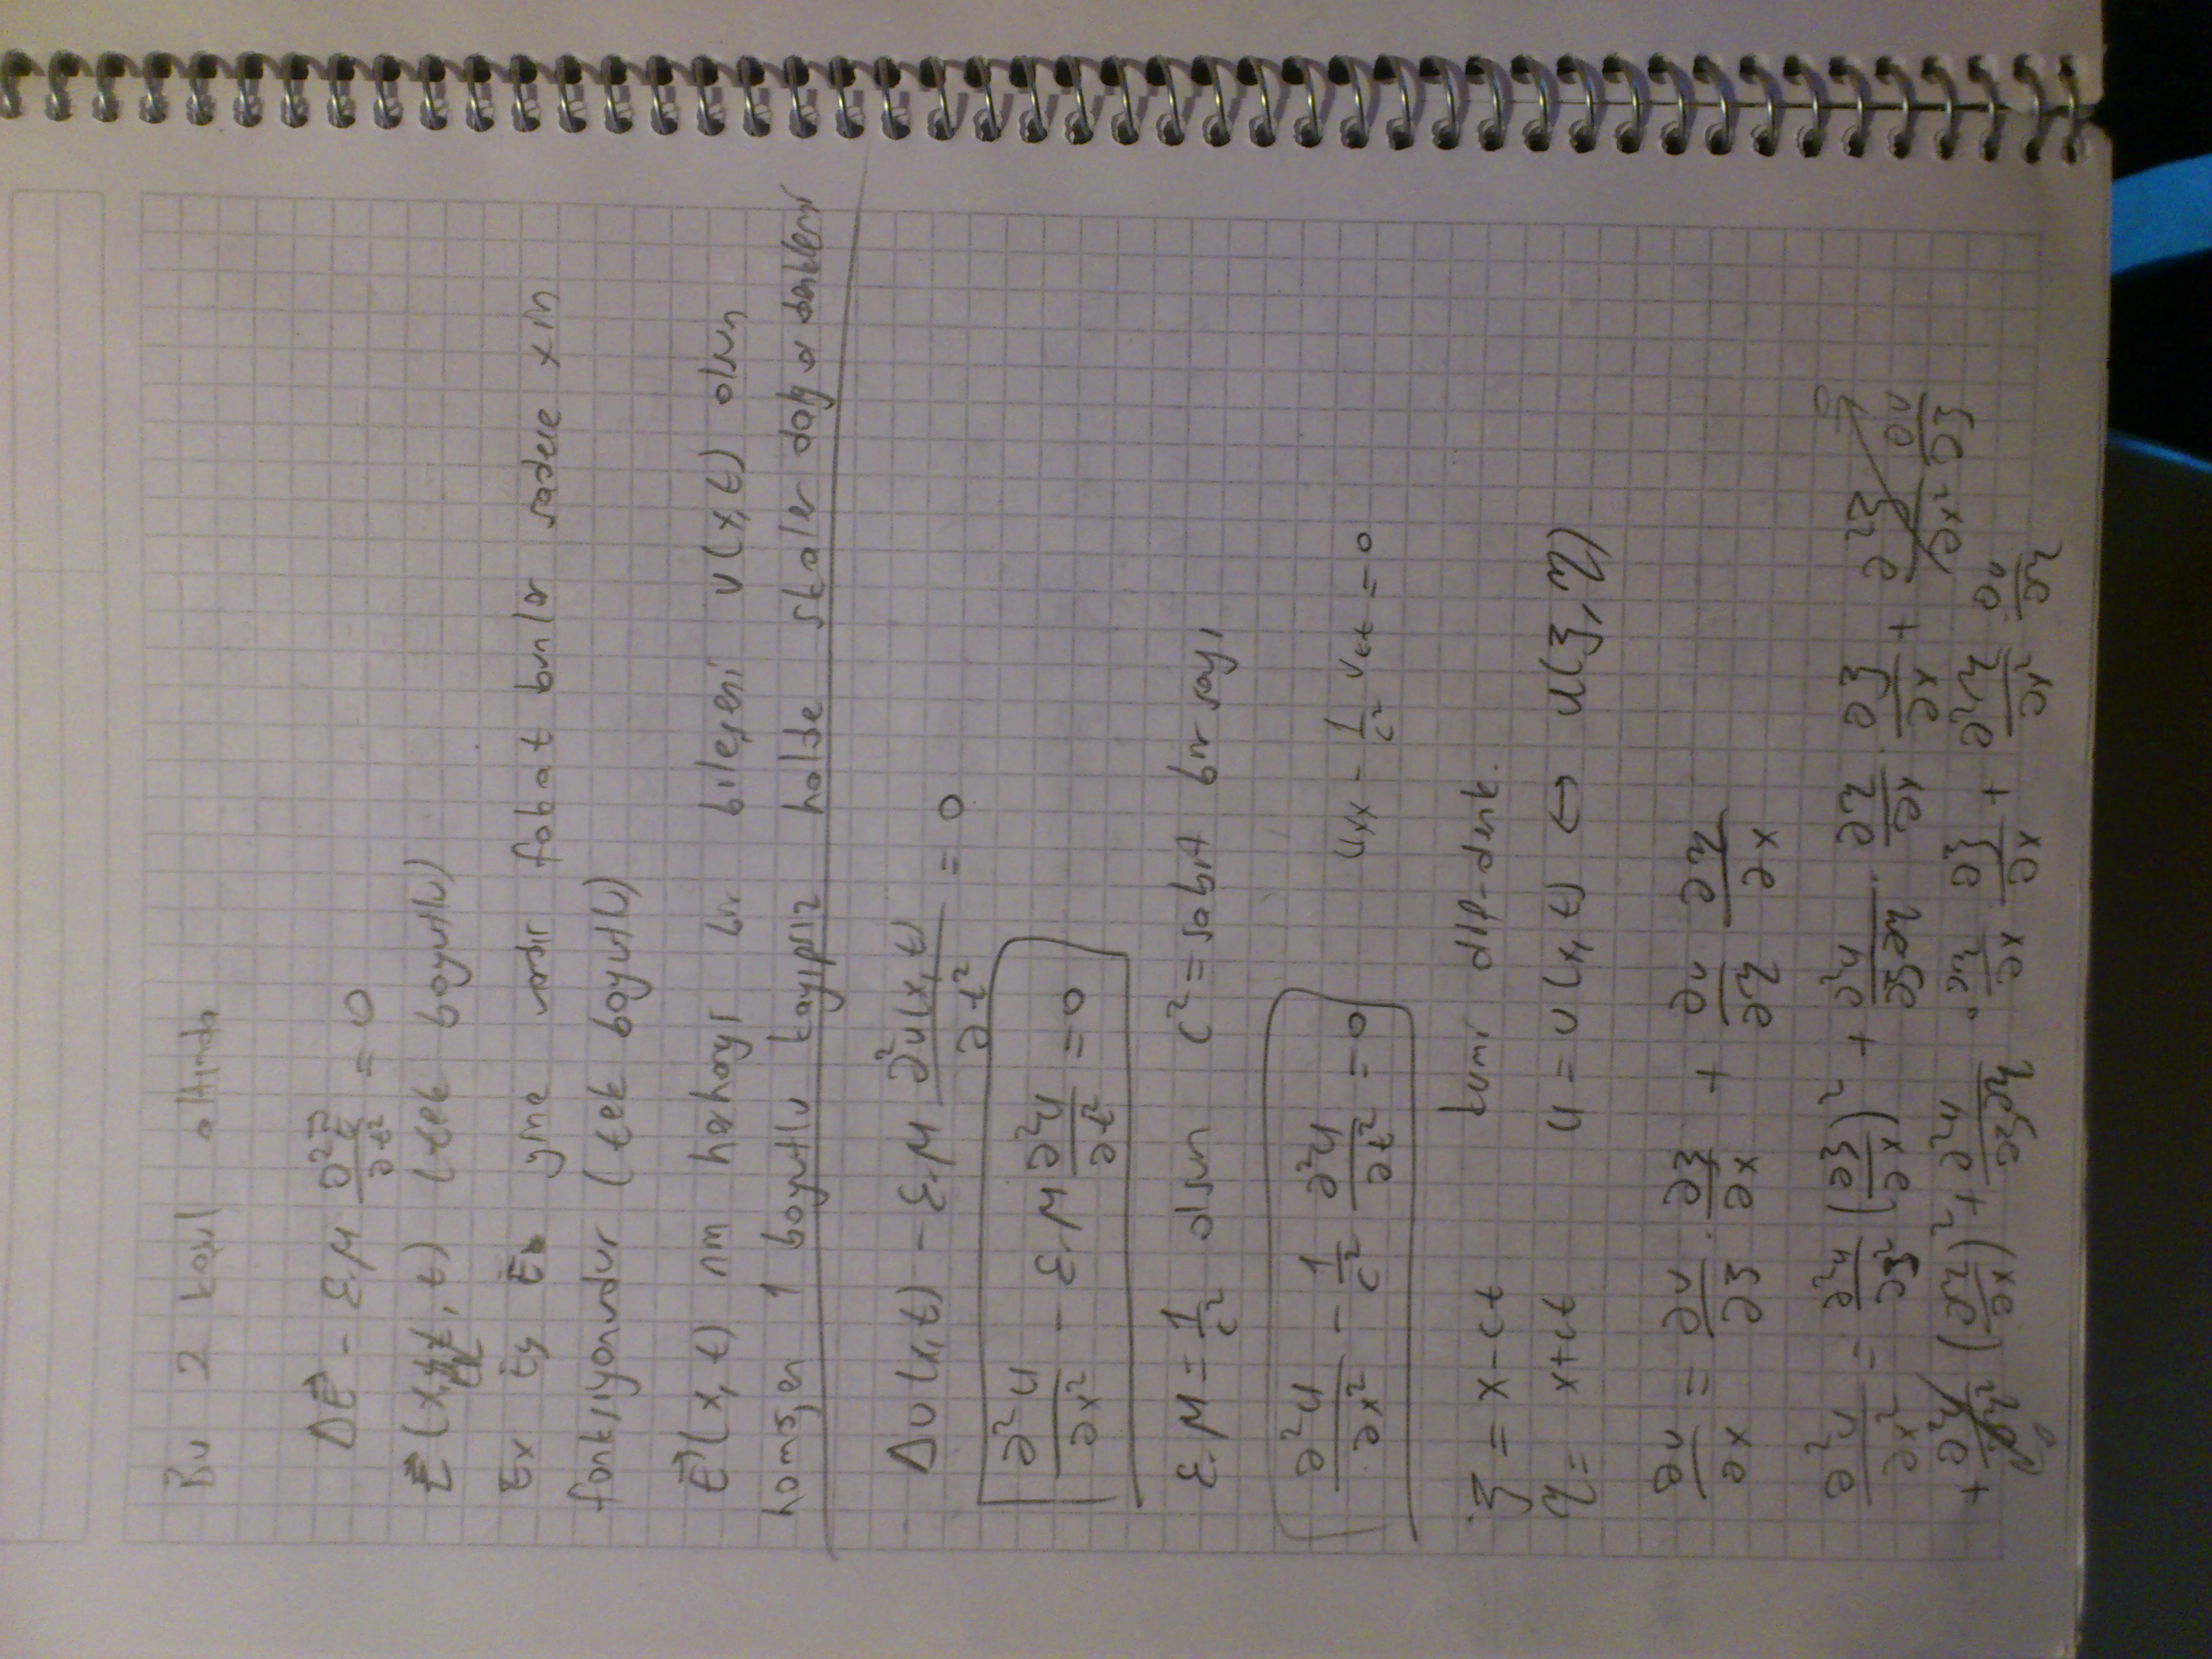 Bu 2 koşul altında
ΔE⃗ - ε.μ ∂²E⃗/∂t² = 0
E⃗(x, t) (tek boyutlu)
Ex Ey Ez yine vardır fakat bunlar sadece xin
fonksiyonudur (tek boyutlu)
E⃗(x,t) nin herhangi bir bileşeni u(x,t) olsun
homojen 1 boyutlu kayıpsız halde skaler dalga denklemi
Δu(x,t) - ε.μ ∂²u(x,t)/∂t² = 0
∂²u/∂x² - ε.μ ∂²u/∂t² = 0
ε.μ = 1/c² olsun c² = sabit bir sayı
∂²u/∂x² - 1/c² ∂²u/∂t² = 0 uxx - 1/c² utt = 0
ξ = x-ct kısmi dif-denk.
η = x+ct u = u(x,t) ↔ u(ξ,η)
∂u/∂x = ∂u/∂ξ . ∂ξ/∂x + ∂u/∂η ∂η/∂x
∂²u/∂x² = ∂²u/∂ξ² (∂ξ/∂x)² + ∂²u/∂ξ∂η . ∂η/∂x . ∂ξ/∂x + ∂²ξ/∂x² ∂u/∂ξ → 0
+ ∂²u/∂η² (∂η/∂x)² + ∂²u/∂ξ∂η . ∂η/∂x ∂ξ/∂x + ∂²η/∂x² ∂u/∂η